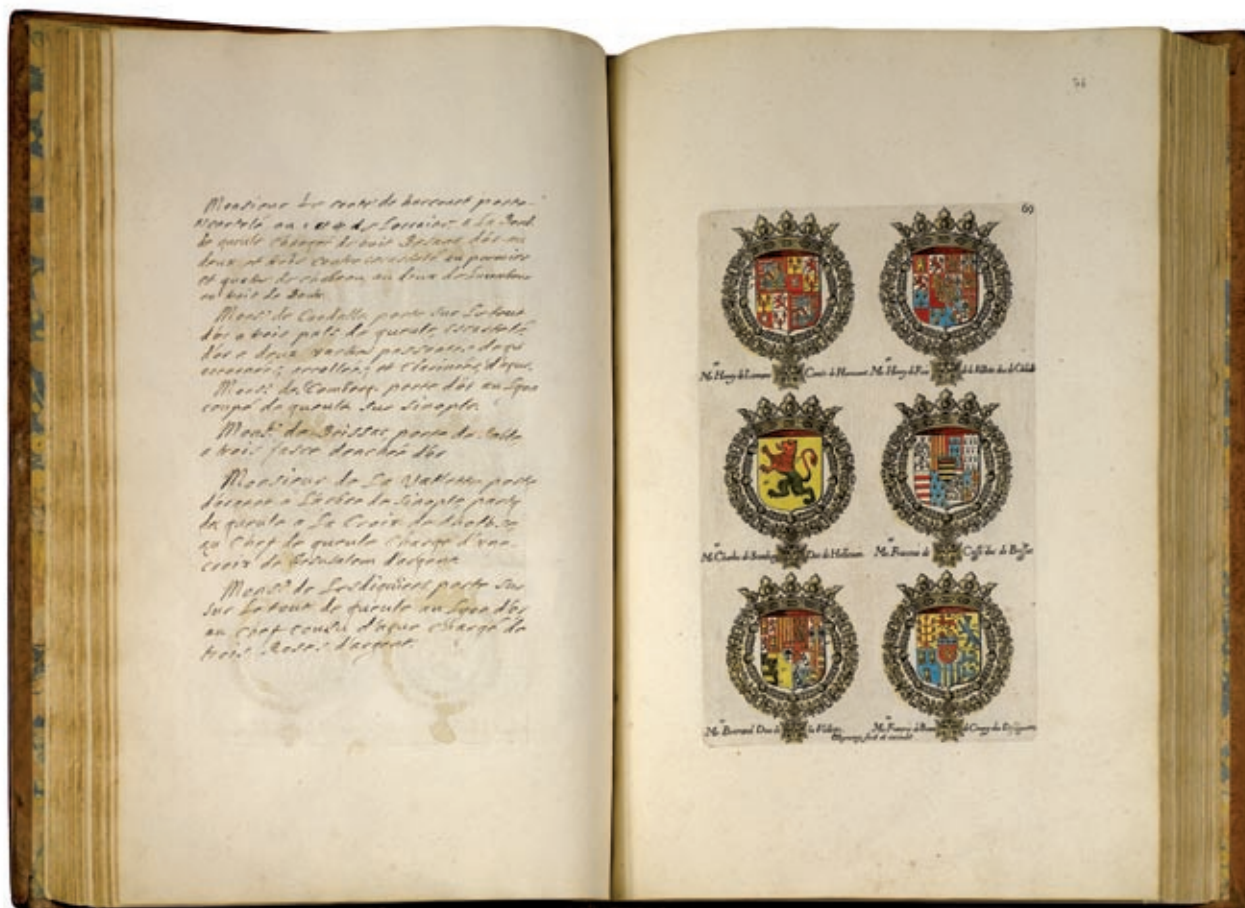 Monsieur Le conte de harcourt porte
escartelé au 1 et 4 de Lorraine a La Bord.
de gueule chargée de trois Besans d'or au
deux et trois contre escartelé au premier
et quatre de chabeau au deux de
au trois de
Mons.r de Candalle porte sur Le tout
d'or a trois pals de gueule escartelé
d'or a deux vaches passantes de gu
accornées, accollées, et clarinées d'azur.
Mons.r de porte d'or au Lyon
coupé de gueule sur sinople.
Mons.r de Brissac porte de sable
a trois fasce d'or
Monsieur de La Vallette porte
d'argent a L'arbre de sinople party
de gueule a La Croix de
au chef de gueule chargé d'une
croix de Jerusalem d'argent
Mons.r de Lesdiguieres porte sur
sur Le tout de gueule au Lyon d'or
au chef cousu d'azur chargé de
trois Roses d'argent.
76
69
M.re Henry de Lorraine Comte de Harcourt M.re Henry de Foix de la Vallette duc de
M.re Charles de Duc de M.re Francois de Cossé duc de Brissac
M.re Bernard Duc de la Vallette M.re Francois de Bonne de duc
fecit et excudit